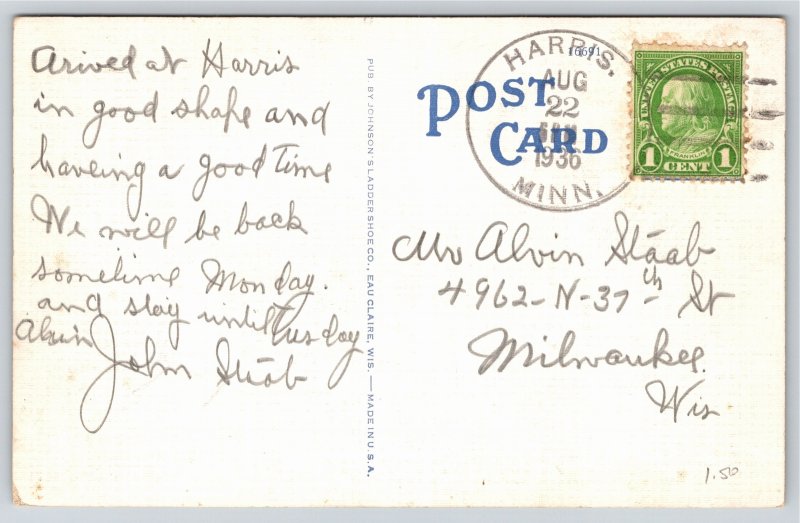 Arived at Harris
in good shape and
haveing a good Time
We will be back
sometime Monday.
and stay until Tusday
Alvin
John Staab
PUB. BY JOHNSON'S LADDER SHOE CO., EAU CLAIRE, WIS. — MADE IN U.S.A.
16691
POST
CARD
HARRIS.
AUG
22
1936
MINN.
UNITED STATES POSTAGE
FRANKLIN
1 CENT 1
Mr Alvin Staab
4962-N-37th St
Milwaukee.
Wis
1.50